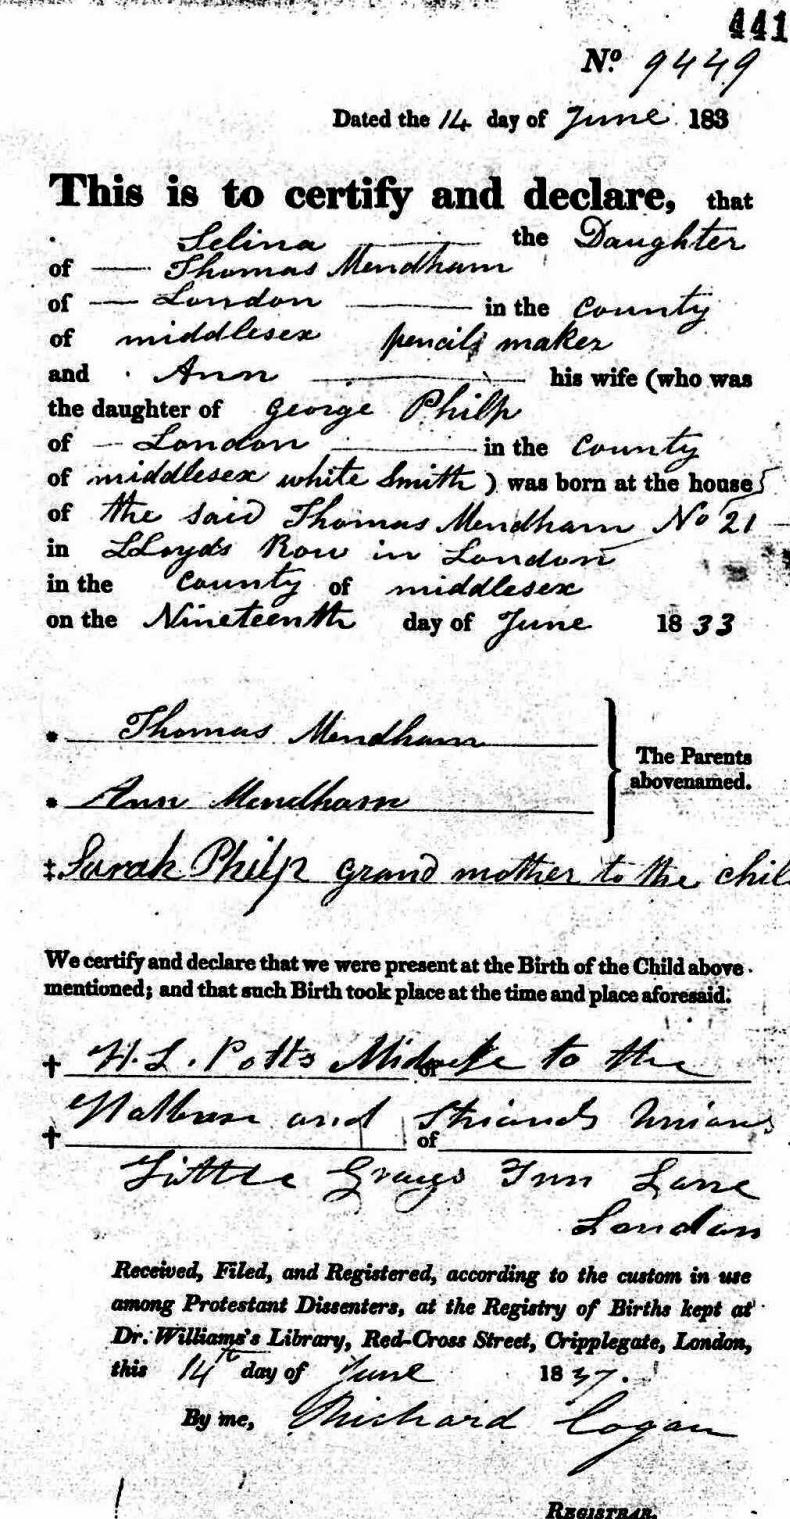 441
No. 9449
Dated the 14 day of June 183
This is to certify and declare, that
Selina the Daughter
of Thomas Mendham
of London in the County
of middlesex pencils maker
and Ann his wife (who was
the daughter of George Philp
of London in the County
of middlesex white Smith) was born at the house
of the said Thomas Mendham No 21
in LLoyds Row in London
in the County of middlesex
on the Nineteenth day of June 1833
* Thomas Mendham
The Parents
abovenamed.
* Ann Mendham
‡ Sarah Philp grand mother to the chil
We certify and declare that we were present at the Birth of the Child above
mentioned; and that such Birth took place at the time and place aforesaid.
† H. L. Potts Midwife of to the
† and Strands Unions
of
Little Grays Inn Lane
London
Received, Filed, and Registered, according to the custom in use
among Protestant Dissenters, at the Registry of Births kept at
Dr. Williams's Library, Red-Cross Street, Cripplegate, London,
this 14th day of June 1837.
By me, Richard Cogan
REGISTRAR.